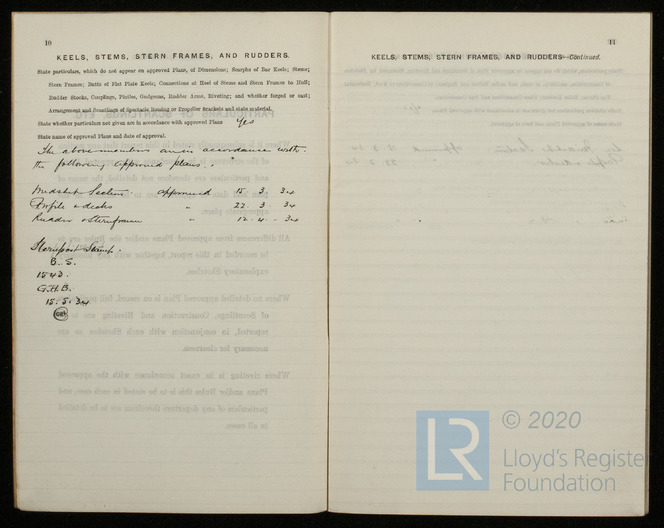 10
KEELS, STEMS, STERN FRAMES, AND RUDDERS.
State particulars, which do not appear on approved Plans, of Dimensions; Scarphs of Bar Keels; Stems;
Stern Frames; Butts of Flat Plate Keels; Connections at Heel of Stems and Stern Frames to Hull;
Rudder Stocks, Couplings, Pintles, Gudgeons, Rudder Arms, Riveting; and whether forged or cast;
Arrangement and Scantlings of Spectacle Bossing or Propeller Brackets and state material.
State whether particulars not given are in accordance with approved Plans Yes
State name of approved Plans and date of approval.
The above mention are in accordance with
the following approved plans.
Midship Section approved 15. 3. 34
Profile & decks " 22. 3. 34
Rudder & Sternframe " 12. 4. 34
Sternpost Stamp.
B. S.
1543.
G.H.B.
15. 5. 34
11
KEELS, STEMS, STERN FRAMES, AND RUDDERS—Continued.
LR
© 2020
Lloyd's Register
Foundation